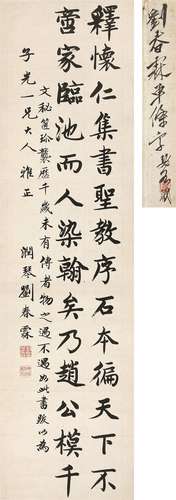 釋懷仁集書聖教序石本徧天下不
啻家臨池而人染翰矣乃趙公模千
文秘笈珍襲歷千歲未有傳者物之遇不遇如此書跋以為
子光一兄大人雅正
潤琴劉春霖
劉春霖單條字